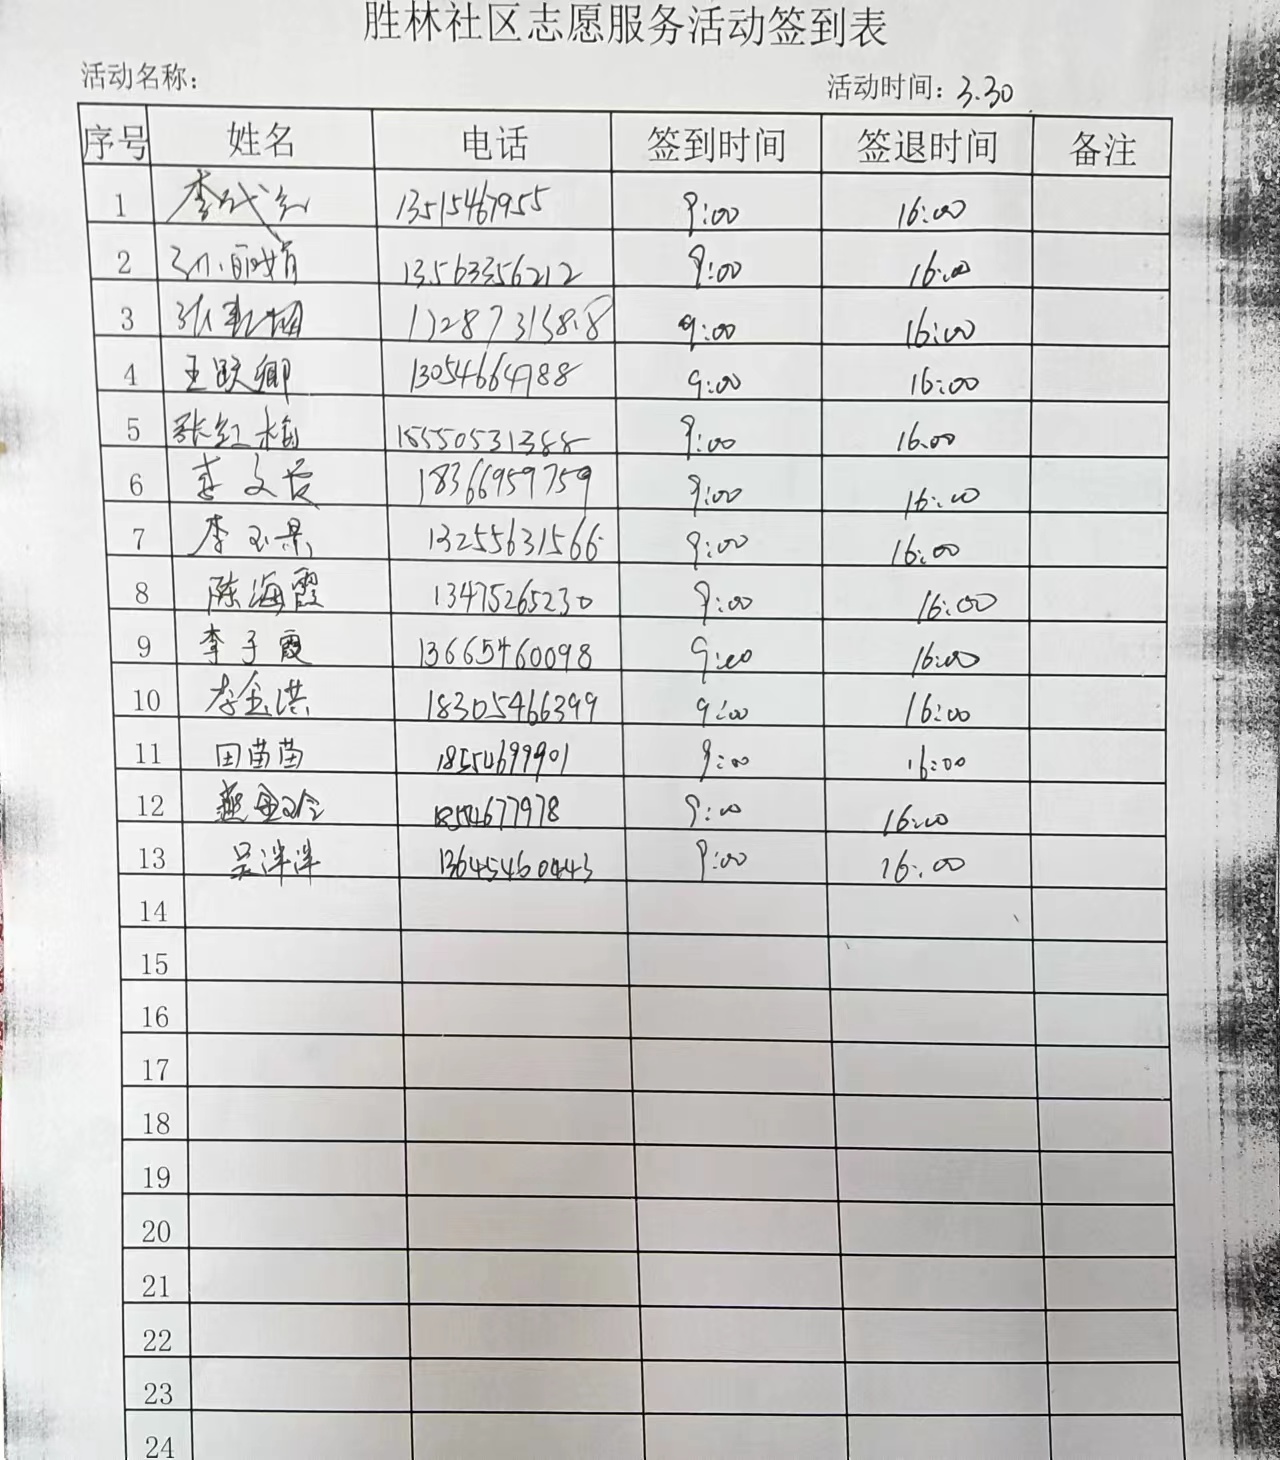 胜林社区志愿服务活动签到表
活动名称: 活动时间: 3.30
序号 姓名 电话 签到时间 签退时间 备注
1 李 13515467955 9:00 16:00
2 孙丽娟 13563356212 9:00 16:00
3 张 17287315818 9:00 16:00
4 王跃卿 13054664988 9:00 16:00
5 张红梅 18550531388 9:00 16:00
6 李文 18366959759 9:00 16:00
7 李玉景 13255631566 9:00 16:00
8 陈海霞 13475265230 9:00 16:00
9 李子霞 13665460098 9:00 16:00
10 李金洪 18305466399 9:00 16:00
11 田苗苗 18554699901 9:00 16:00
12 燕金玲 18554677978 9:00 16:00
13 吴洋洋 13645460443 9:00 16:00
14
15
16
17
18
19
20
21
22
23
24